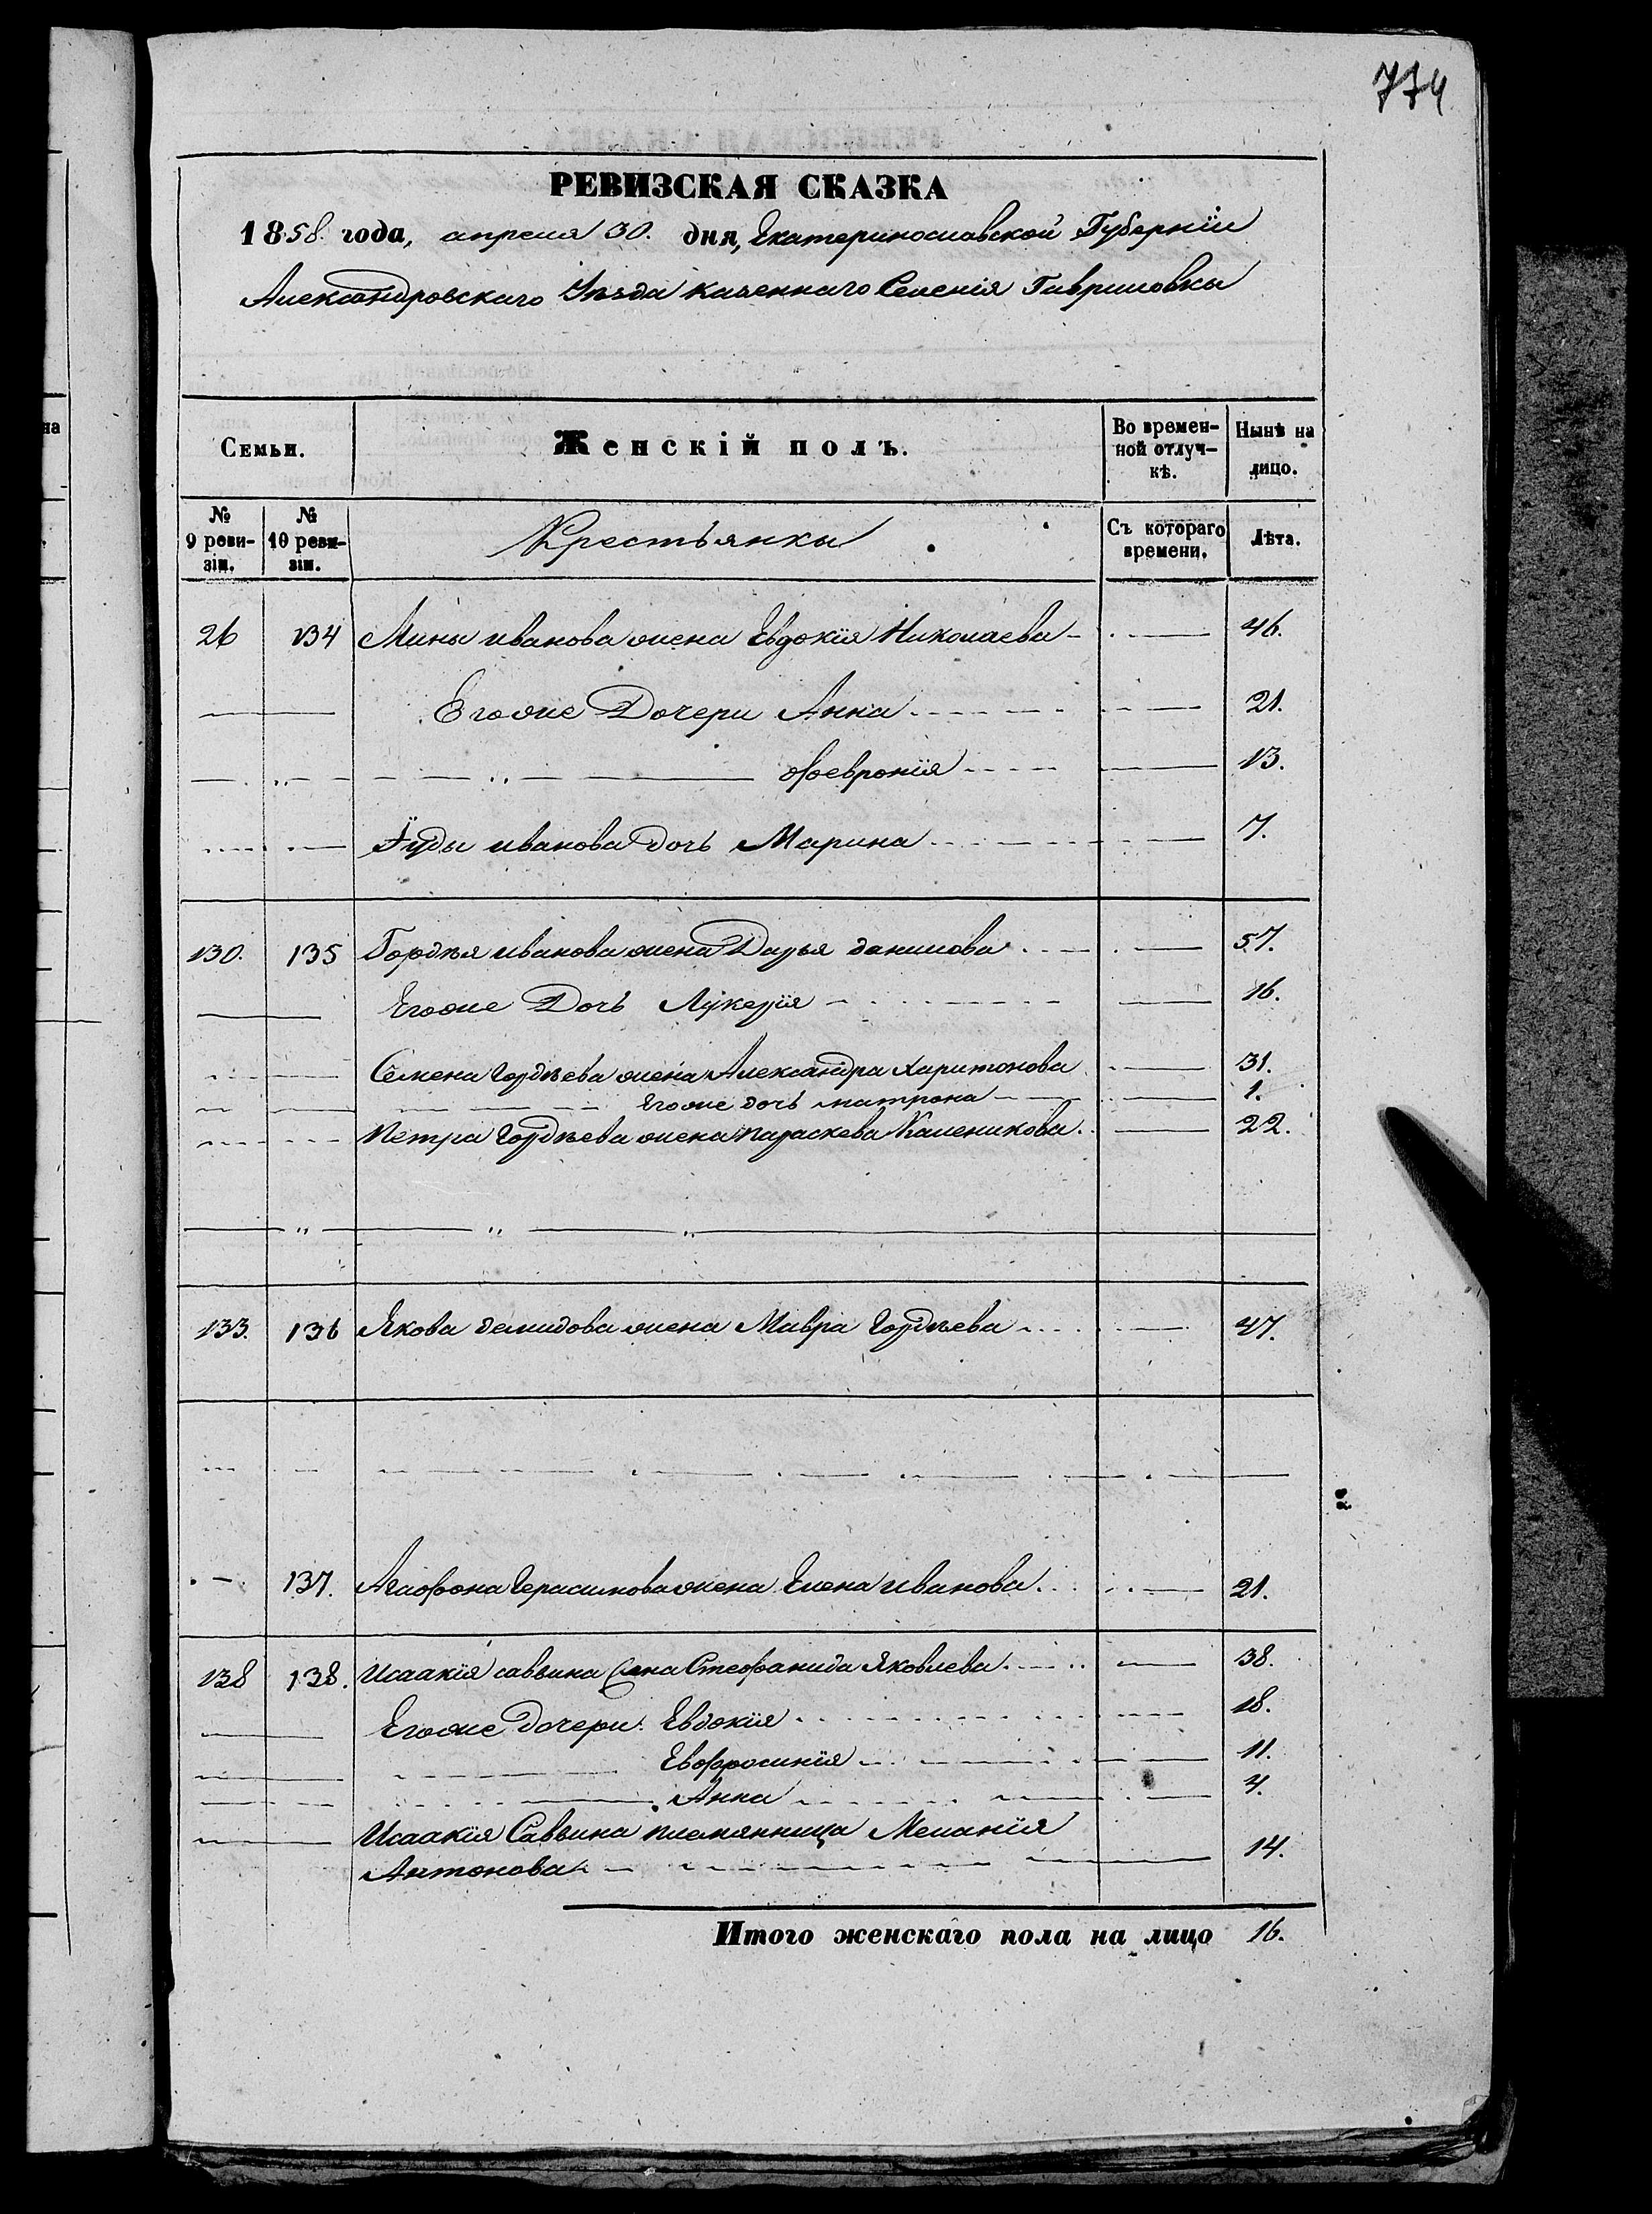 774
РЕВИЗСКАЯ СКАЗКА
1858. года, апреля 30. дня, Екатеринославской Губерніи
Александровскаго Уѣзда казеннаго Селенія Гавриловки
Семьи. Женскій полъ. Во времен- Нынѣ на
ной отлуч- лицо.
кѣ.
№ № Крестьянки Съ котораго Лѣта.
9 реви- 10 реви- времени.
зіи. зіи.
26 134 Мины иванова жена Евдокія Николаева 46.
Егоже Дочери Анна 21.
Февронія 13.
Іуды иванова дочь Марина 7.
130. 135 Гордѣя иванова жена Дарья данилова 57.
Егоже Дочь Лукерія 16.
Семена Гордѣева жена Александра Харитонова 31.
Егоже дочь матрона 1.
Петра Гордѣева жена параскева Каленикова 22.
133. 136 Якова демидова жена Мавра Гордѣева 47.
137. Агафона Герасимова жена Елена иванова 21.
138 138. Исаакія саввина жена Стефанида Яковлева 38.
Егоже дочери Евдокія 18.
Евфросинія 11.
Анна 4.
Исаакія Саввина племянница Меланія
Антонова 14.
Итого женскаго пола на лицо 16.